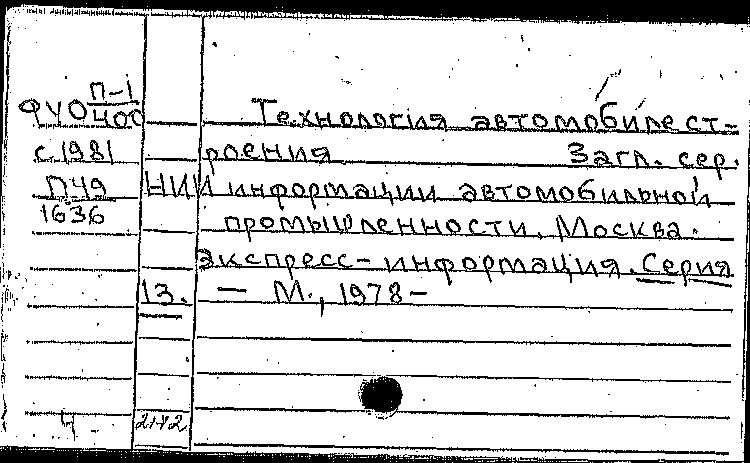 П-1
ФУО 400
Технология автомобилест-
с 1981 роения Загл. сер.
П49 НИИ информации автомобильной
1636 промышленности. Москва.
Экспресс-информация. Серия
13. — М., 1978-
4